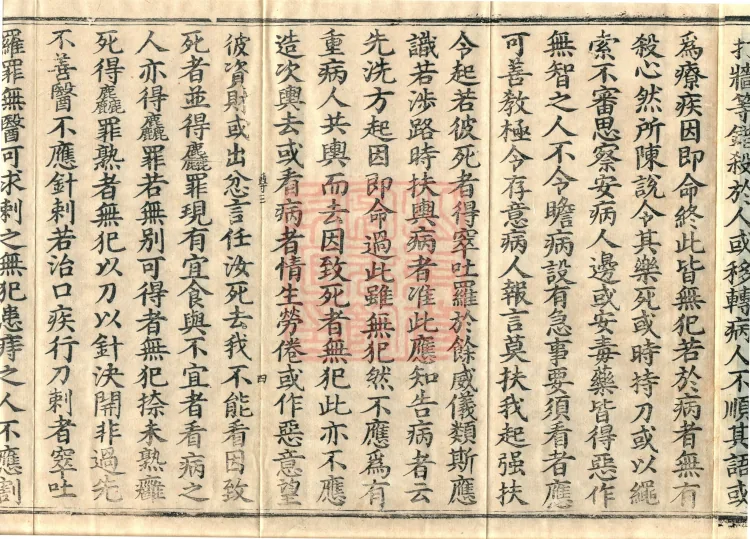 打牆等錯殺於人或移轉病人不順其語或
爲療疾因即命終此皆無犯若於病者無有
殺心然所陳說令其樂死或時持刀或以繩
索不審思察安病人邊或安毒藥皆得惡作
無智之人不令瞻病設有急事要須看者應
可善教極令存意病人報言莫扶我起强扶
令起若彼死者得窣吐羅於餘威儀類斯應
識若涉路時扶輿病者准此應知告病者云
先洗方起因即命過此雖無犯然不應爲有
重病人共輿而去因致死者無犯此亦不應
造次輿去或看病者情生勞倦或作惡意望
彼資財或出忿言任汝死去我不能看因致
死者並得麤罪現有宜食與不宜者看病之
人亦得麤罪若無別可得者無犯捺未熟癰
死得麤罪熟者無犯以刀以針決開非過先
不善醫不應針刺若治口疾行刀刺者窣吐
羅罪無醫可求刺之無犯患痔之人不應割